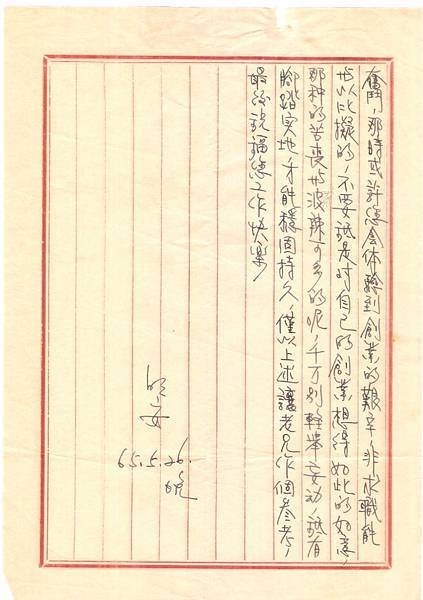 奮鬥，那時或許您會体驗到創業的艱辛非求職能
比擬的，不要說是对自己的創業想得如此的如意，
那种的苦喪 波辣 的呢，千万别輕举妄动，說有
腳踏实地，才能穩固持久，僅以上述讓老兄作個参考，
最後說福您工作快樂，
明安
65.5.26.
晚